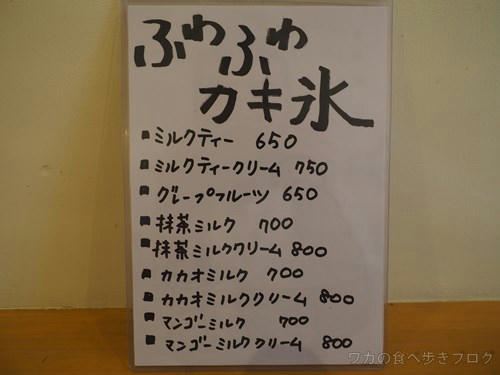 ふわふわ
カキ氷
■ミルクティー 650
■ミルクティークリーム 750
■グレープフルーツ 650
■抹茶ミルク 700
■抹茶ミルククリーム 800
■カカオミルク 700
■カカオミルククリーム 800
■マンゴーミルク 700
■マンゴーミルククリーム 800
ワカの食べ歩きブログ